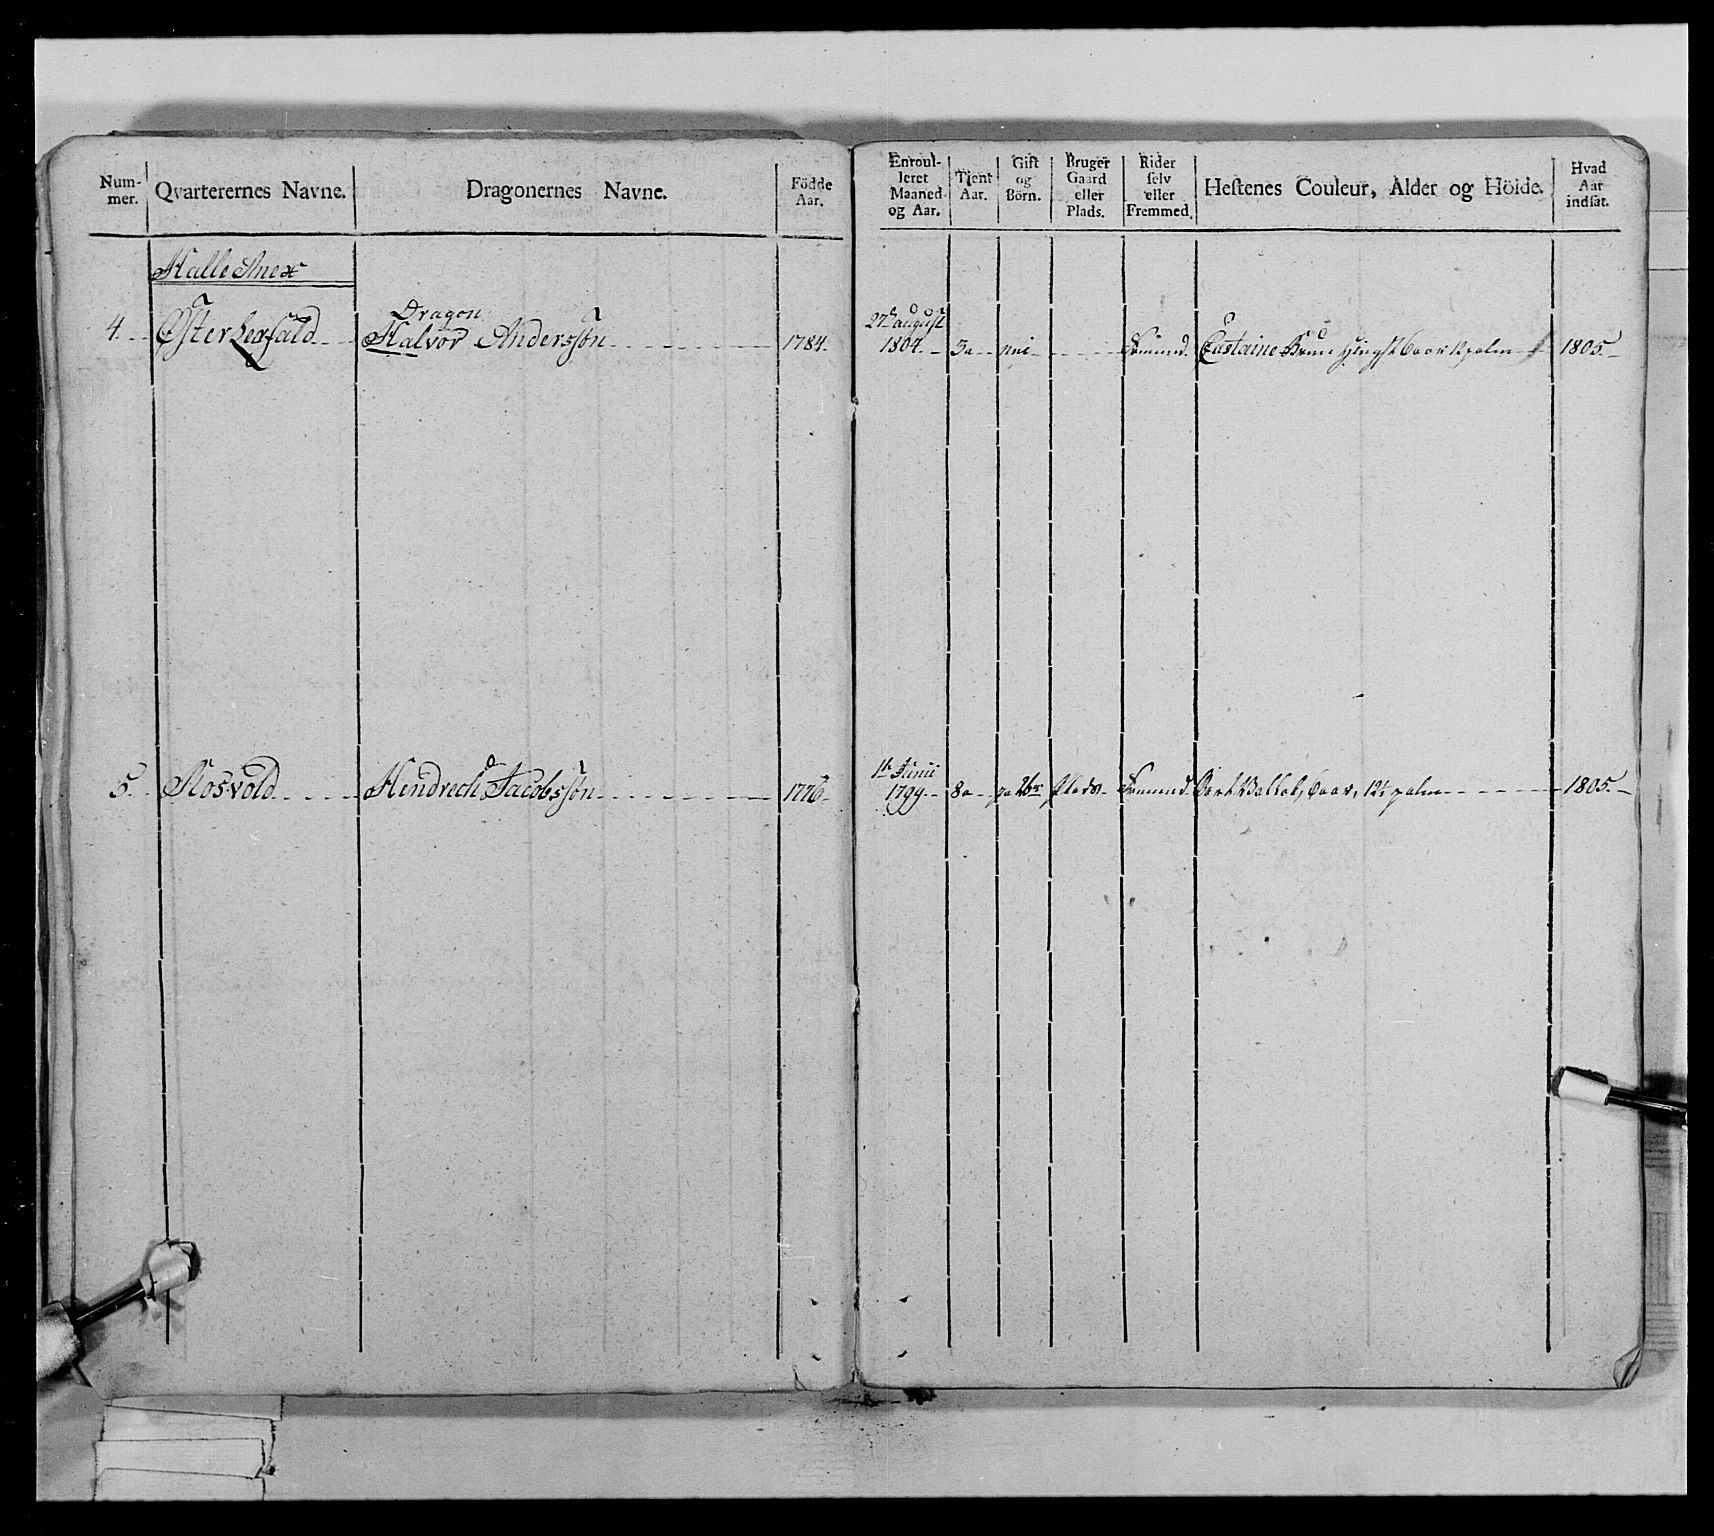 Num-
mer.
Qvarterernes Navne.
Dragonernes Navne.
Födde
Aar.
Enroul-
leret
Maaned
og Aar.
Tient
Aar.
Gift
og
Börn.
Bruger
Gaard
eller
Plads.
Rider
selv
eller
Fremmed.
Hestenes Couleur, Alder og Höide.
Hvad
Aar
indsat.
Halle Anex
Dragon
27de august
4. Øster Halvor Anderssøn 1784. 1804. 3a nei Fremmed. Castaine Brun Hingst 6 aar 12 palm 1805.
1te Junii
5. Rosvold Hendrech Jacobssøn 1776 1799. 8a ja 2br Plads Fremmed. 6 aar, 12½ palm 1805.